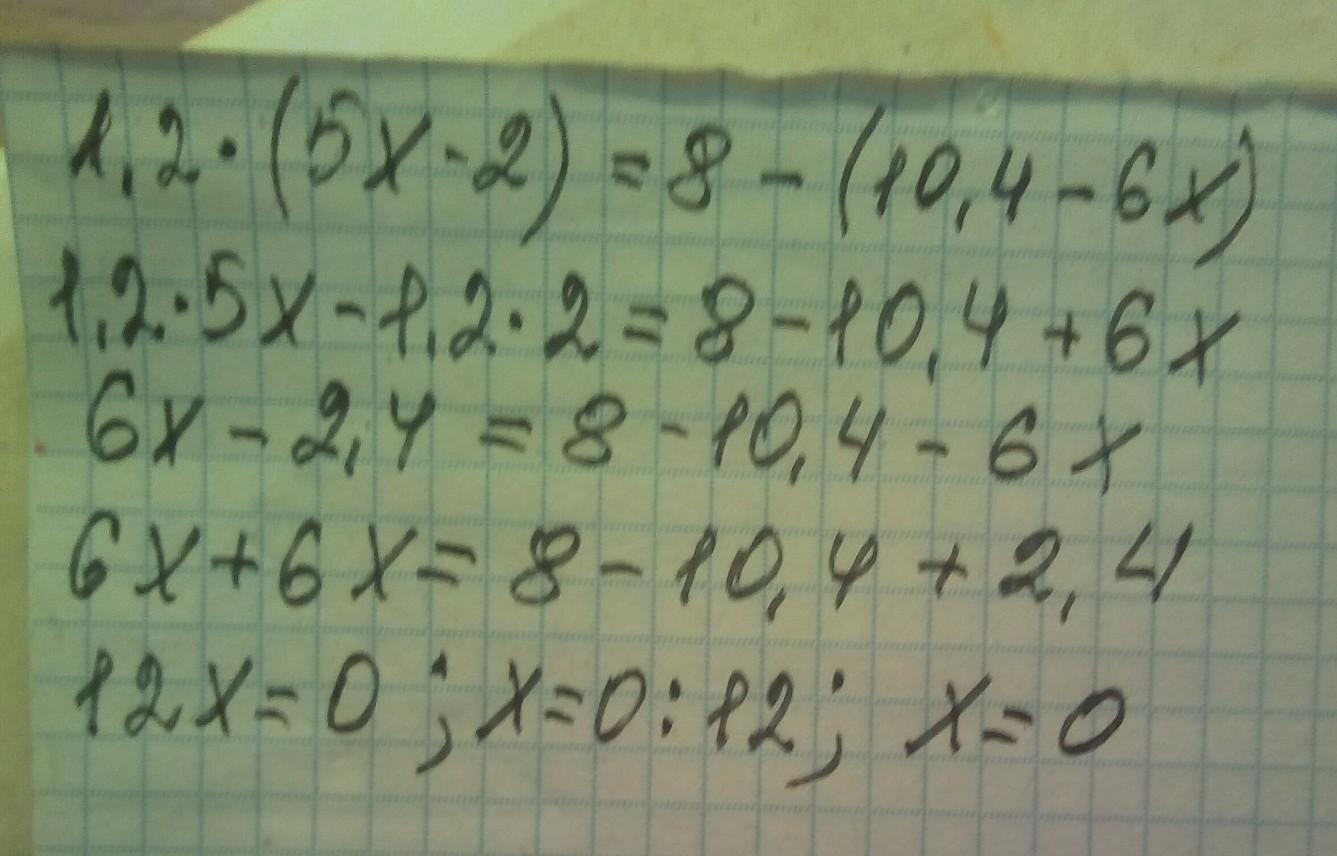 1,2·(5x-2)=8-(10,4-6x)
1,2·5x-1,2·2=8-10,4+6x
6x-2,4=8-10,4-6x
6x+6x=8-10,4+2,4
12x=0; x=0:12; x=0